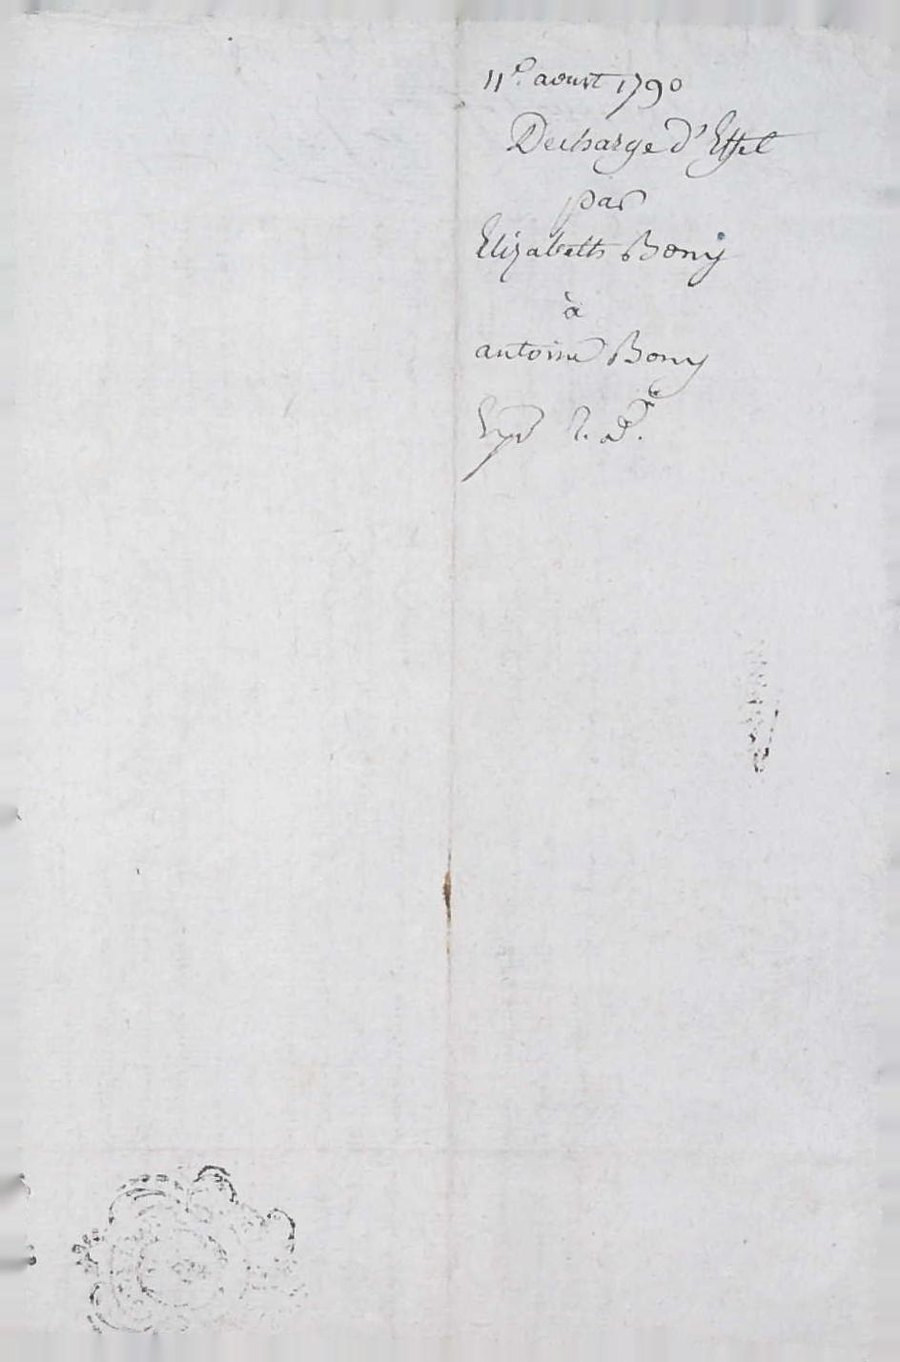 11e. aoust 1790
Decharge d'Effel
par
Elizabeth Bony
à
antoine Bony
Exp